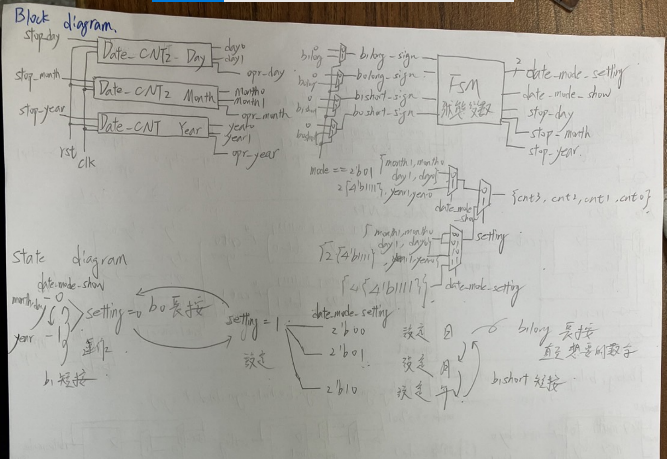 Block diagram.
stop_day
Date_CNT2_Day
day0
day1
opr_day
stop_month
Date_CNT2 Month
month0
month1
opr_month
stop_year
Date_CNT Year
year0
year1
opr_year
rst
clk
0
bilong_sign
0
bolong_sign
0
bishort_sign
0
boshort_sign
FSM
2
date_mode_setting
date_mode_show
stop_day
stop_month
stop_year
mode == 2'b01
{month1, month0
day1, day0}
2{4'b1111}, year1, year0
date_mode
show
0
1
{cnt3, cnt2, cnt1, cnt0}
{month1, month0
day1, day0}
{2{4'b1111}, year1, year0}
00
01
10
11
setting
{4{4'b1111}}
date_mode_setting
State diagram
date_mode_show
month day
0
year
1
setting=0
b1 短按
b0 長按
setting = 1
設定
date_mode_setting
2'b00
設定 日
2'b01
設定 月
2'b10
設定 年
bilong 長按
直至想要的數字
bishort 短按